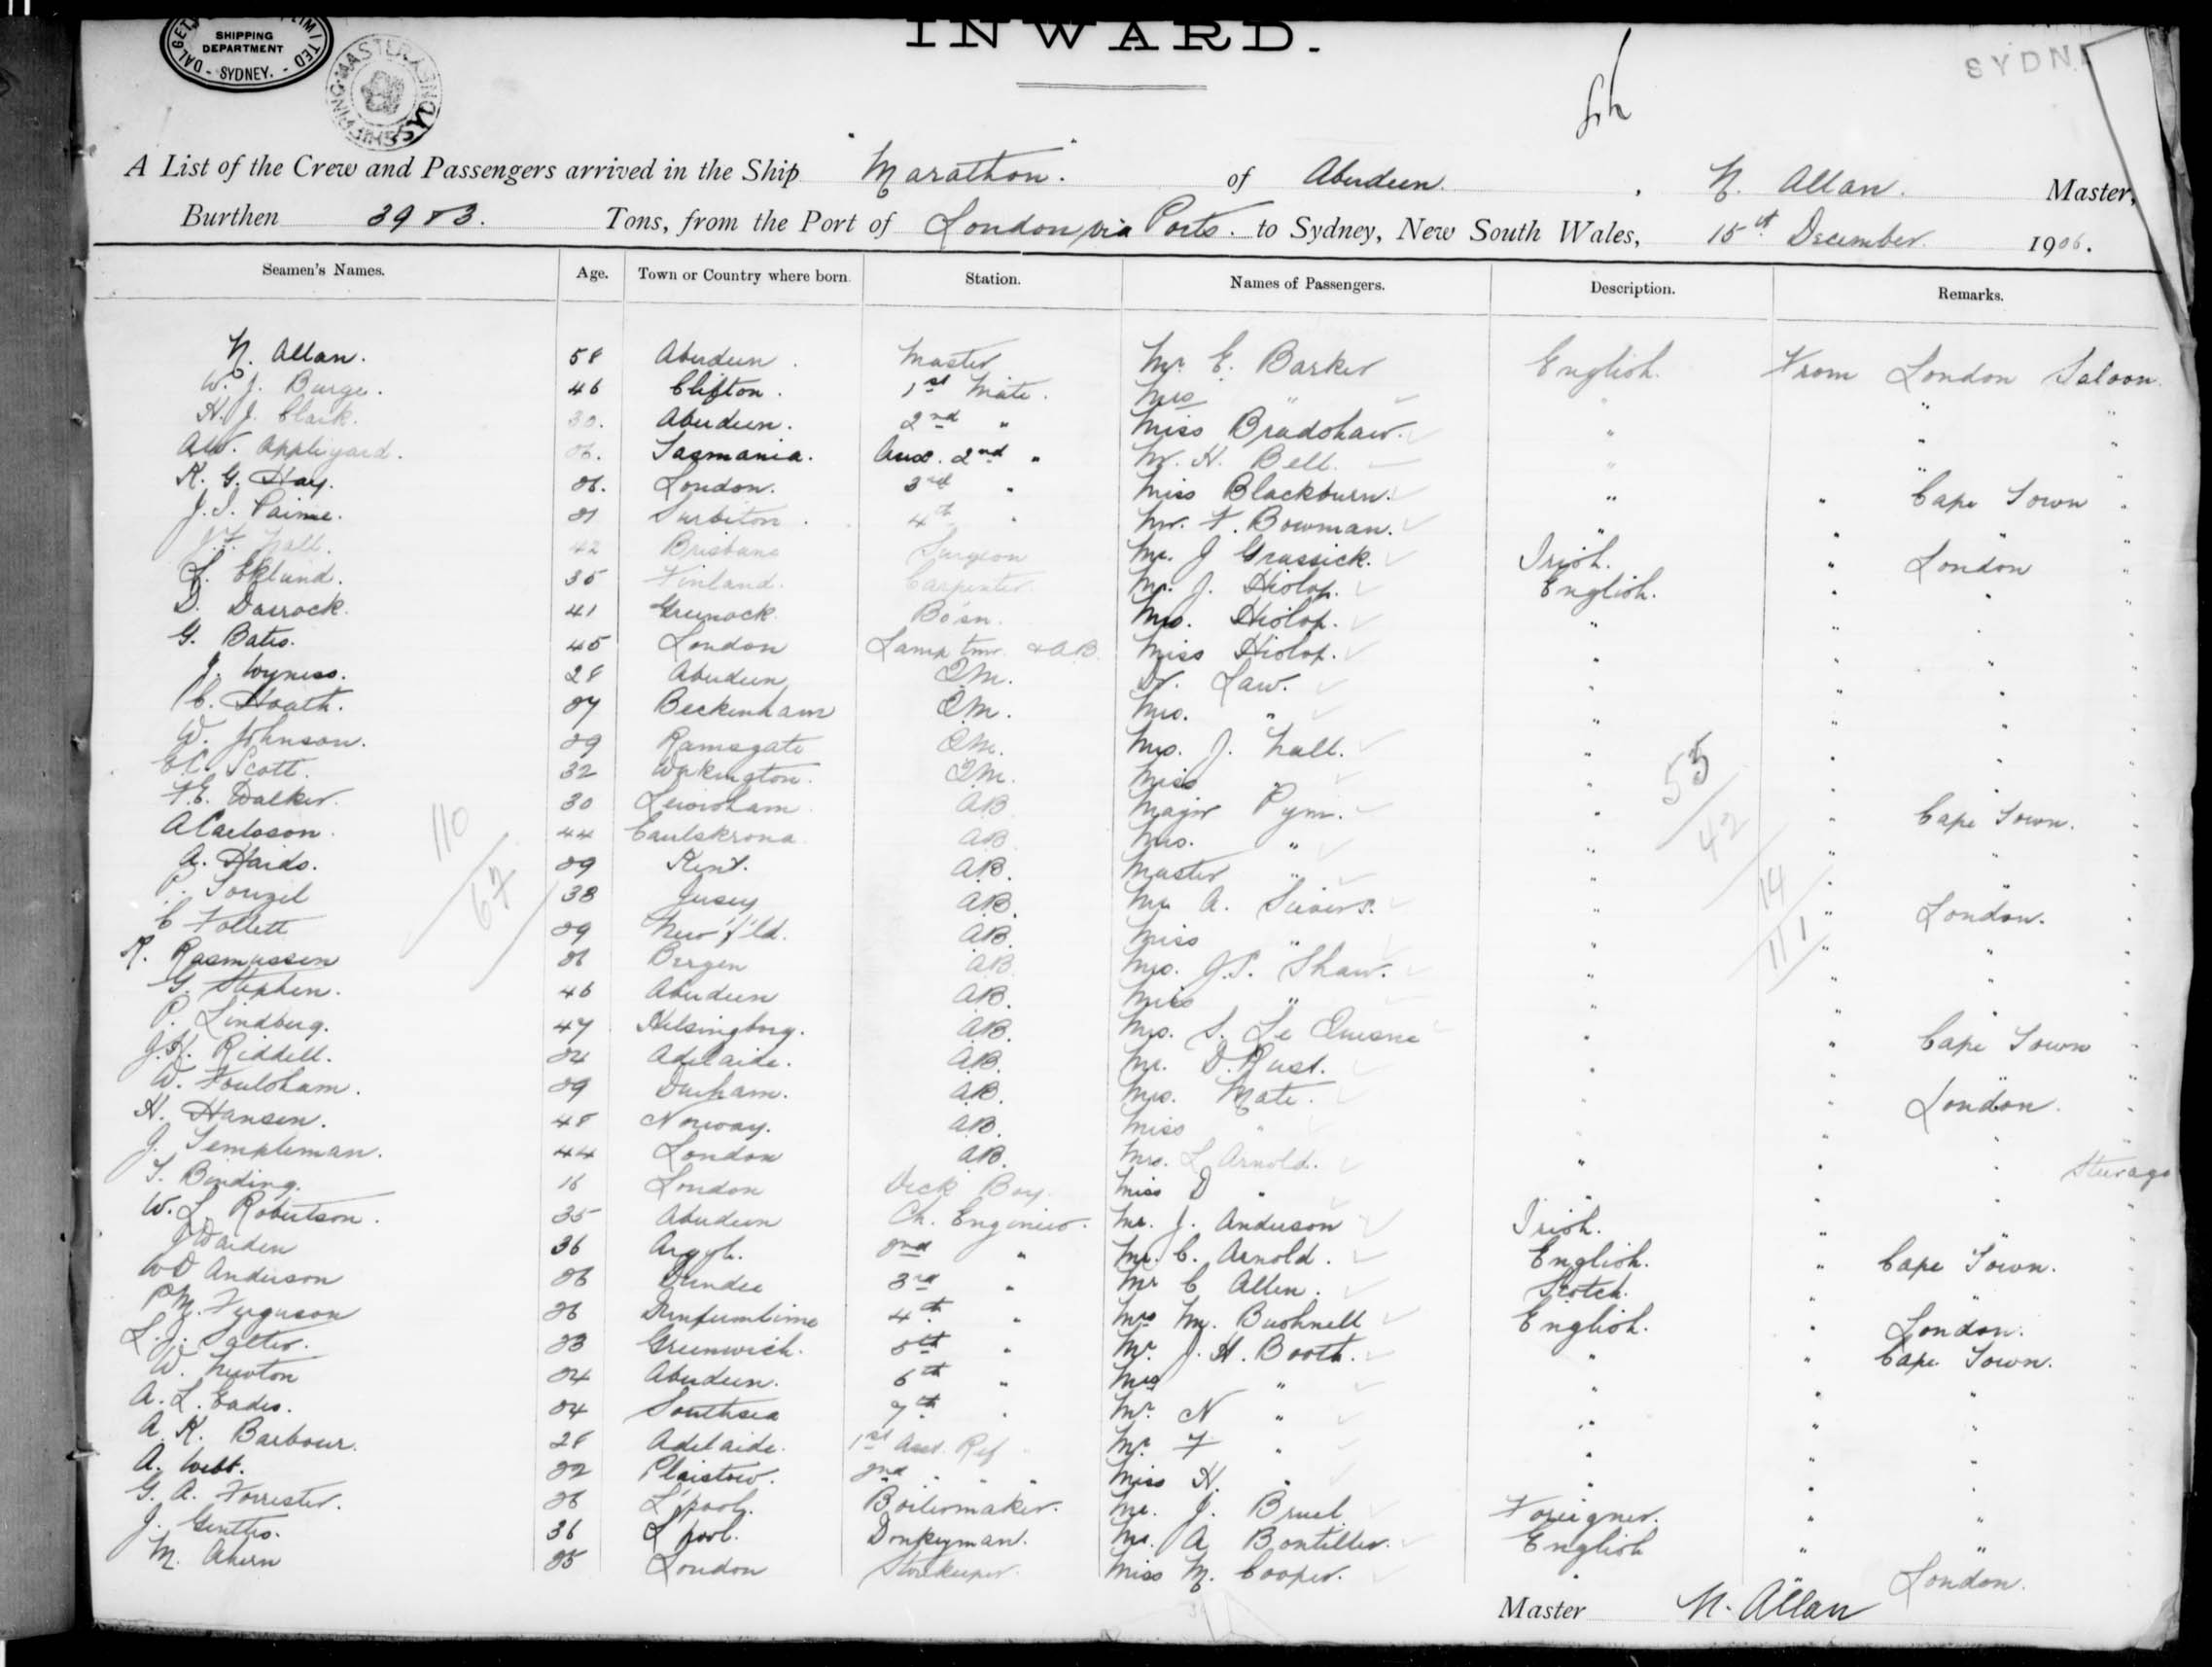 SHIPPING
DEPARTMENT
SYDNEY.
INWARD.
A List of the Crew and Passengers arrived in the Ship "Marathon." of Aberdeen, N. Allan. Master,
Burthen 3983. Tons, from the Port of London via Ports. to Sydney, New South Wales, 15th December 1906.
Seamen's Names. Age. Town or Country where born. Station. Names of Passengers. Description. Remarks.
N. Allan. 58 Aberdeen. Master Mr. E. Barker English. From London Saloon.
W. J. Burge. 46 Clifton. 1st Mate. Mrs " "
H. J. Clark. 30. Aberdeen. 2nd " Miss Bradshaw. "
A.W. Appleyard. 26. Tasmania. Aux. 2nd " W. H. Bell. "
R. G. Hay. 26. London. 3rd " Miss Blackburn. " " Cape Town "
J.S. 21 Surbiton. 4th " Mr. F. Bowman. "
42 Brisbane Surgeon Mr. J Grassick. Irish. " London "
L. Eklund. 35 Finland. Carpenter Mr. J. Hislop. English. " "
D. Darrock. 41 Greenock. Bo'sn. Mrs. Hislop. " "
G. Bates. 45 London Lamp tmr. & AB. Miss Hislop. " "
J. Wyness. 28 Aberdeen Q.M. Dr. Law. " "
C. Hoath. 27 Beckenham Q.M. Mrs. " " "
W. Johnson. 29 Ramsgate Q.M. Mrs. J. Nall. " "
E.C. Scott. 32 Workington. Q.M. Miss " "
F.E. Walker. 30 Lewisham AB Major Pym. " " Cape Town.
A Carlsson. 44 Carlskrona AB Mrs. " " "
A. 29 Kent. A.B. Master " " "
38 Jersey A.B. Mr A. " " London.
C Follett 29 New'f'ld. A.B. Miss " " "
R. Rasmussen 26 Bergen AB Mrs. J.P. Shaw. " "
G. Stephen. 46 Aberdeen A.B. Miss " " "
P. Lindberg. 47 Helsingborg. A.B. Mrs. S. Le Quesne " " Cape Town
J.H. Riddell. 24 Adelaide. A.B. Mr. D. Rust. " "
W. Foulsham. 29 Durham. A.B. Mrs. Mate. " " London.
H. Hansen. 48 Norway. AB. Miss " " "
J. Templeman. 44 London A.B. Mrs. L Arnold. " " Steerage
T. Binding. 16 London Deck Boy. Miss D " " "
W. L. Robertson. 35 Aberdeen Ch. Engineer. Mr. J. Anderson Irish. " "
J Warden 36 Argyl. 2nd " Mr. C. Arnold. English. " Cape Town.
WD Anderson 26 Dundee 3rd " Mr C Allen. Scotch. " "
P.M. Ferguson 26 Dunfermline 4th " Mrs M. Bushnell English. " London.
L.J. Salter. 23 Greenwich. 5th " Mr. J. H. Booth. " " Cape Town.
W. Newton 24 Aberdeen. 6th " Mrs " " " "
A. L. Eades. 24 Southsea 7th " Mr. N " " " "
A. K. Barbour. 28 Adelaide. 1st Asst. Ref Mr. F " " " "
A. Webb. 22 Plaistow. 2nd " " " Miss H. " " " "
G. A. Forrester. 26 L'pool. Boilermaker. Mr. J. Bruel Foreigner. " "
J. Gentles. 36 L'pool. Donkeyman. Mr. A Bontiller. English " "
M. Ahern 25 London Storekeeper. Miss M. Cooper. " " London.
110
67
55
42
14
111
Master N. Allan